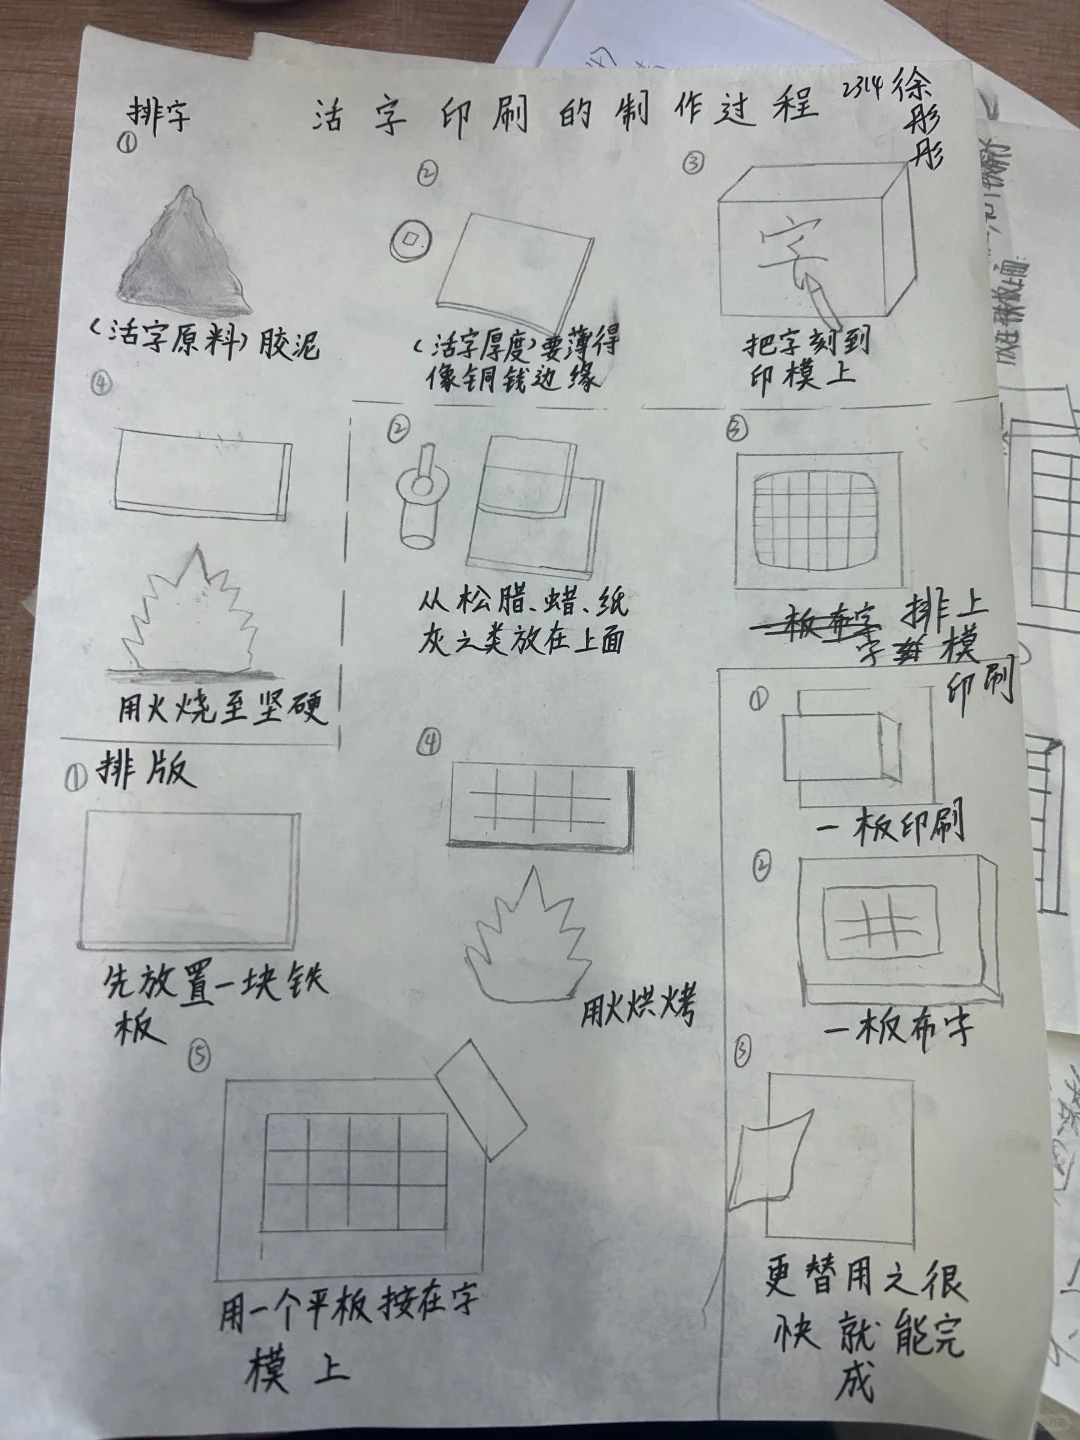 活字印刷的制作过程
2314 徐
彤
彤
排字
①
(活字原料)胶泥
②
(活字厚度)要薄得
像铜钱边缘
③
字
把字刻到
印模上
④
用火烧至坚硬
排版
①
先放置一块铁
板
②
从松腊、蜡、纸
灰之类放在上面
③
一板布字 排上
字 模
④
用火烘烤
⑤
用一个平板按在字
模上
印刷
①
一板印刷
②
一板布字
③
更替用之很
快就能完
成